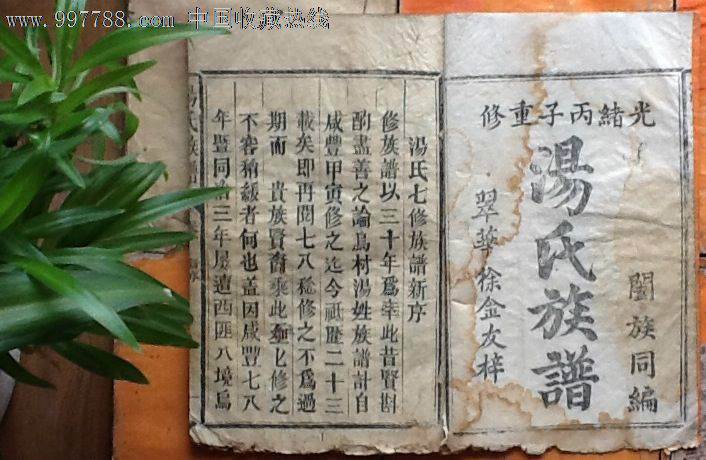 www.997788.com 中国收藏热线
光緒丙子重修
闔族同編
湯氏族譜
翠華徐金友梓
湯氏七修族譜新序
修族譜以三十年爲率此昔賢斟
酌盡善之論爲村湯姓族譜計自
咸豐甲寅修之迄今祗歷二十三
載矣即再閱七八稔修之不爲過
期而 貴族賢裔乘此七修之
不容稍緩者何也蓋因咸豐七八
年曁同治三年屡遭西匪入境爲